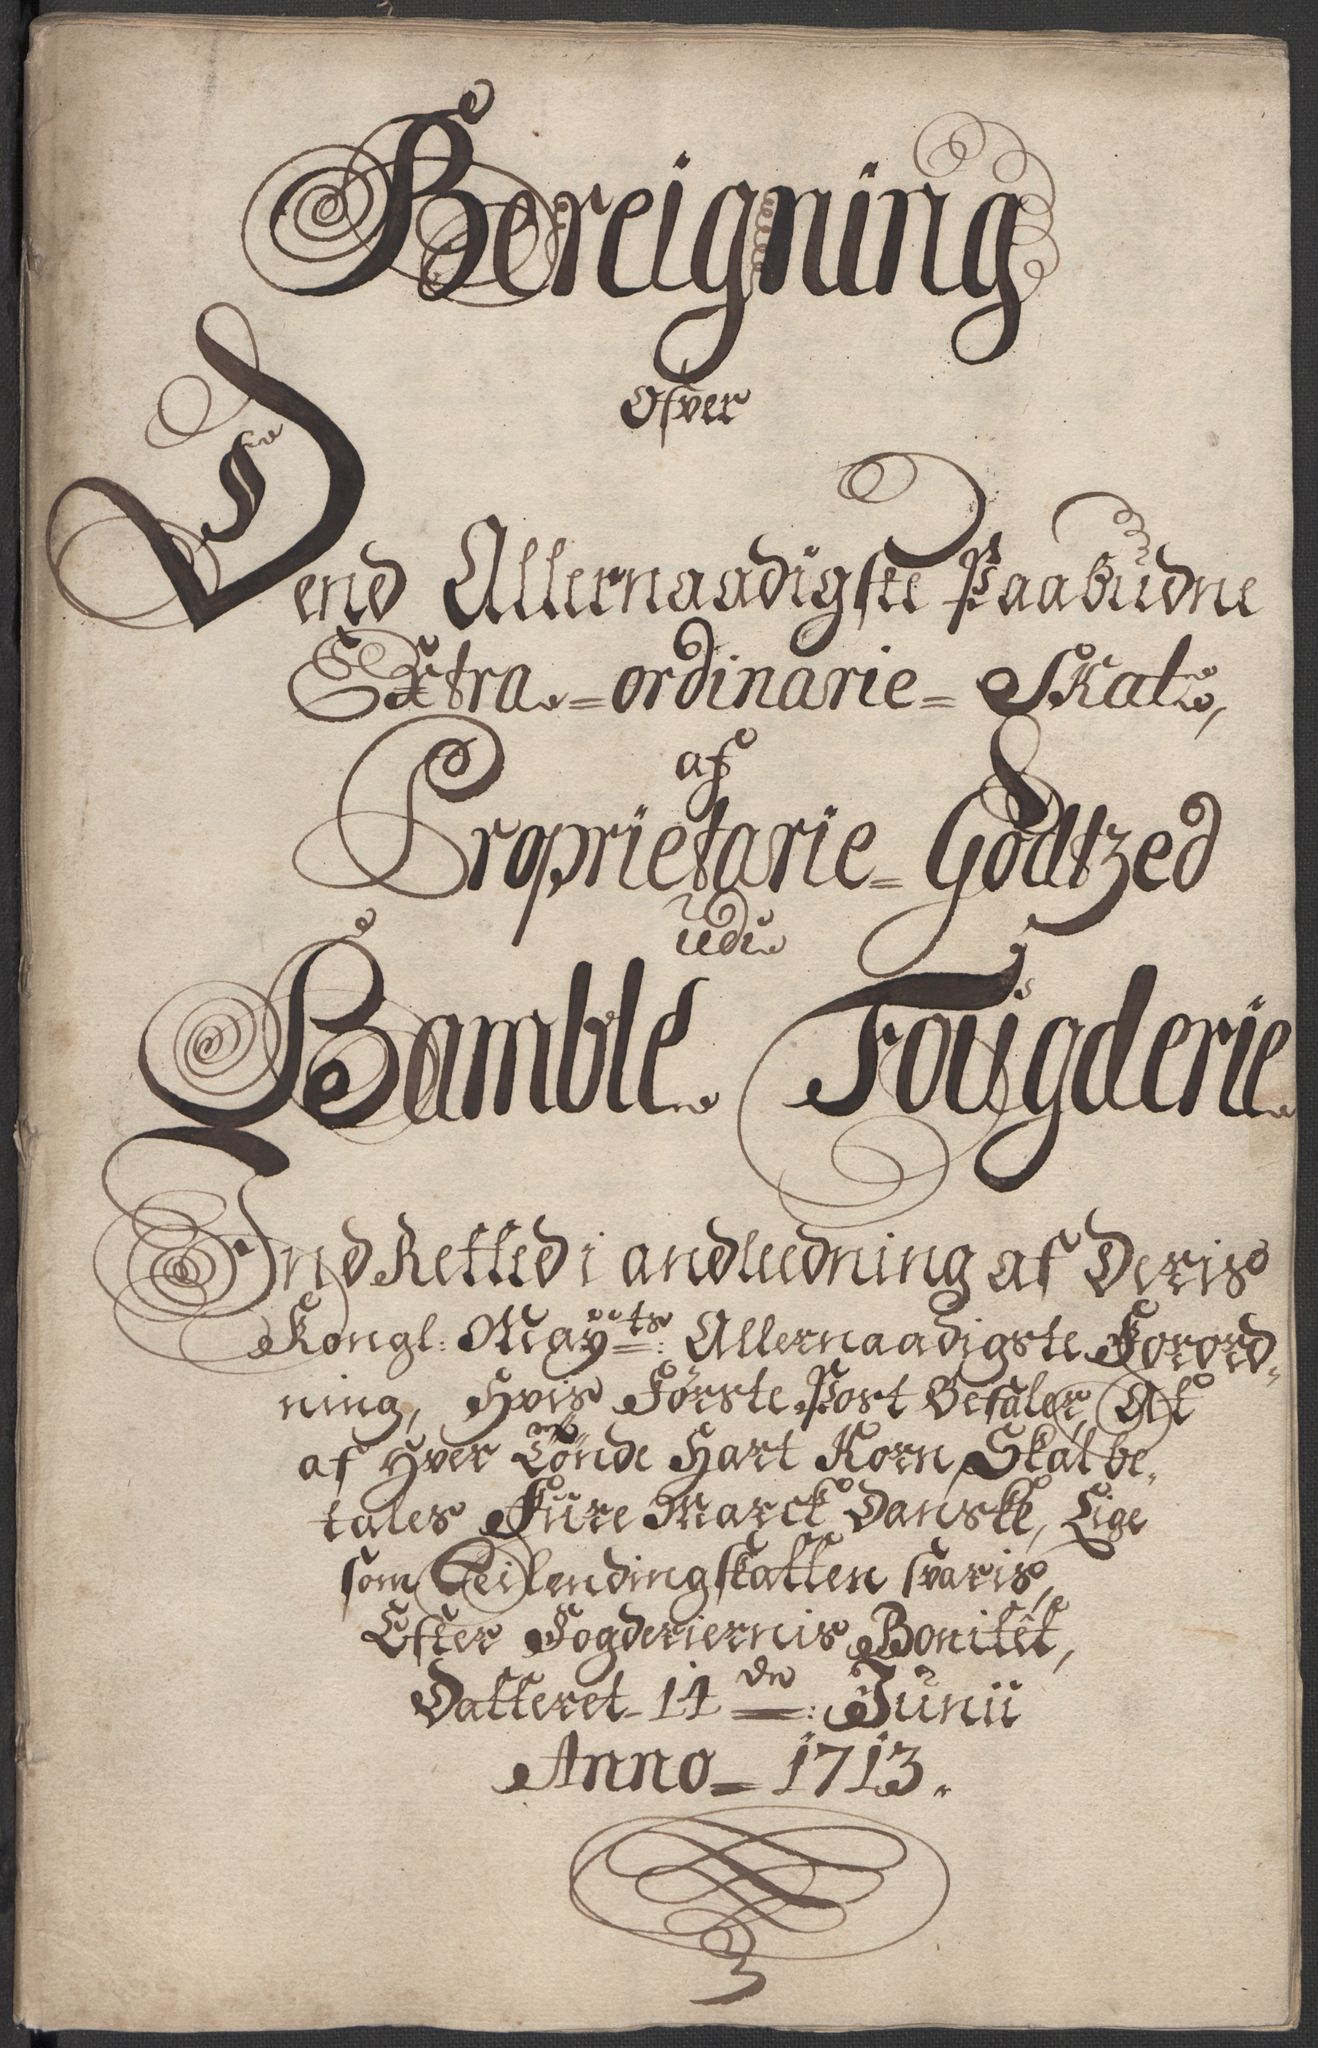 Bereigning
Ofver
Dend Allernaadigste Paabudne
Extra=ordinarie=Skat,
af
Proprietarie=Godtzed
udi
Bamble Fougderie
IndRetted i andleedning af Deris
Kongl: Mayts: Allernaadigste Forord-
ning, Hvis Første Post Befaler, At
af Hver Tönde Hart Korn, Skal be-
tales Fiire Marck Danske, Lige
som Leilendingskatten svaris,
Efter Fogderiernis Bonitët,
Datteret 14de: Junii
Anno=1713.